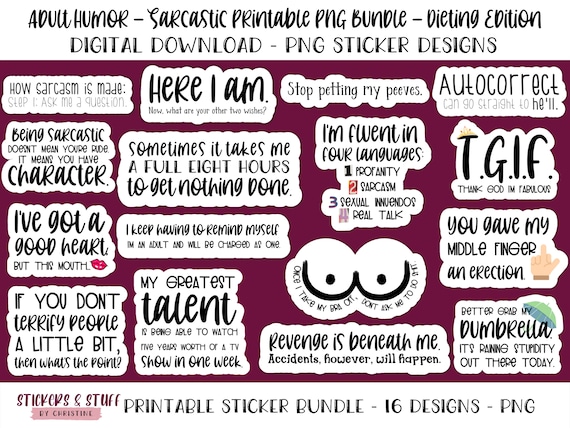 Adult Humor – Sarcastic Printable PNG Bundle – Dieting Edition
DIGITAL DOWNLOAD - PNG STICKER DESIGNS
How sarcasm is made:
Step 1: Ask me a question.
Here I am.
Now, what are your other two wishes?
Stop petting my peeves.
Autocorrect
can go straight to he'll.
Being sarcastic
doesn't mean you're rude.
It means you have
character.
Sometimes it takes me
a full eight hours
to get nothing done.
I'm fluent in
four languages:
1 Profanity
2 Sarcasm
3 Sexual Innuendos
4 Real Talk
T.G.I.F.
Thank God I'm Fabulous
I've got a
good heart,
but this mouth.
I keep having to remind myself
I'm an adult and will be charged as one.
Once I take my bra off,
don't ask me to do shit.
You gave my
middle finger
an erection.
If you don't
terrify people
a little bit,
then what's the point?
My greatest
talent
is being able to watch
five years worth of a TV
show in one week.
Revenge is beneath me.
Accidents, however, will happen.
Better grab my
dumbrella.
It's raining stupidity
out there today.
STICKERS & STUFF
BY CHRISTINE
PRINTABLE STICKER BUNDLE - 16 DESIGNS - PNG